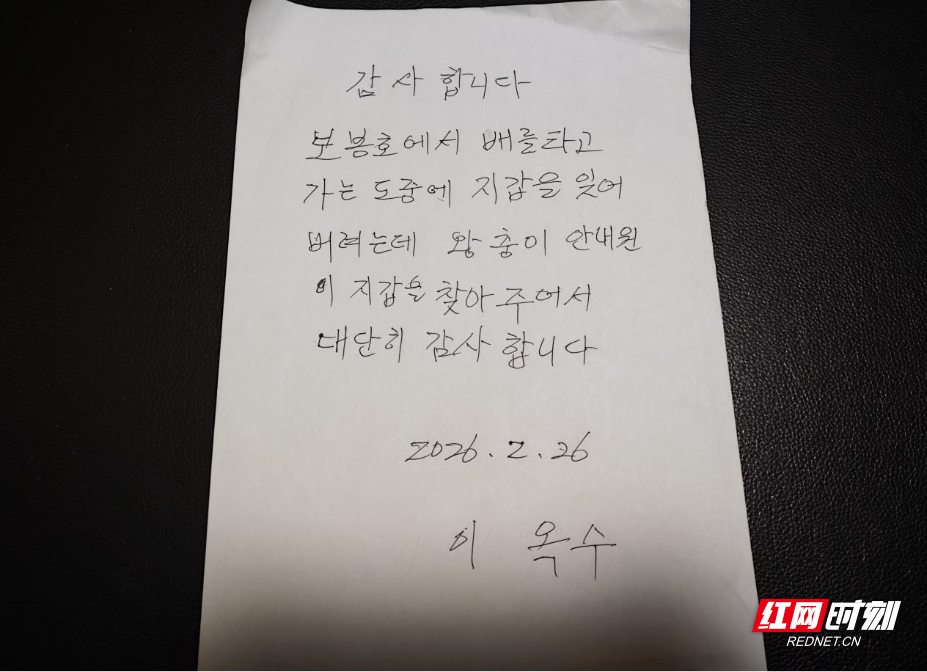 감사합니다
보봉호에서 배를타고
가는 도중에 지갑을 잊어
버려는데 왕충이 안내원
이 지갑을 찾아 주어서
대단히 감사 합니다
2026.2.26
이 옥수
红网时刻
REDNET.CN